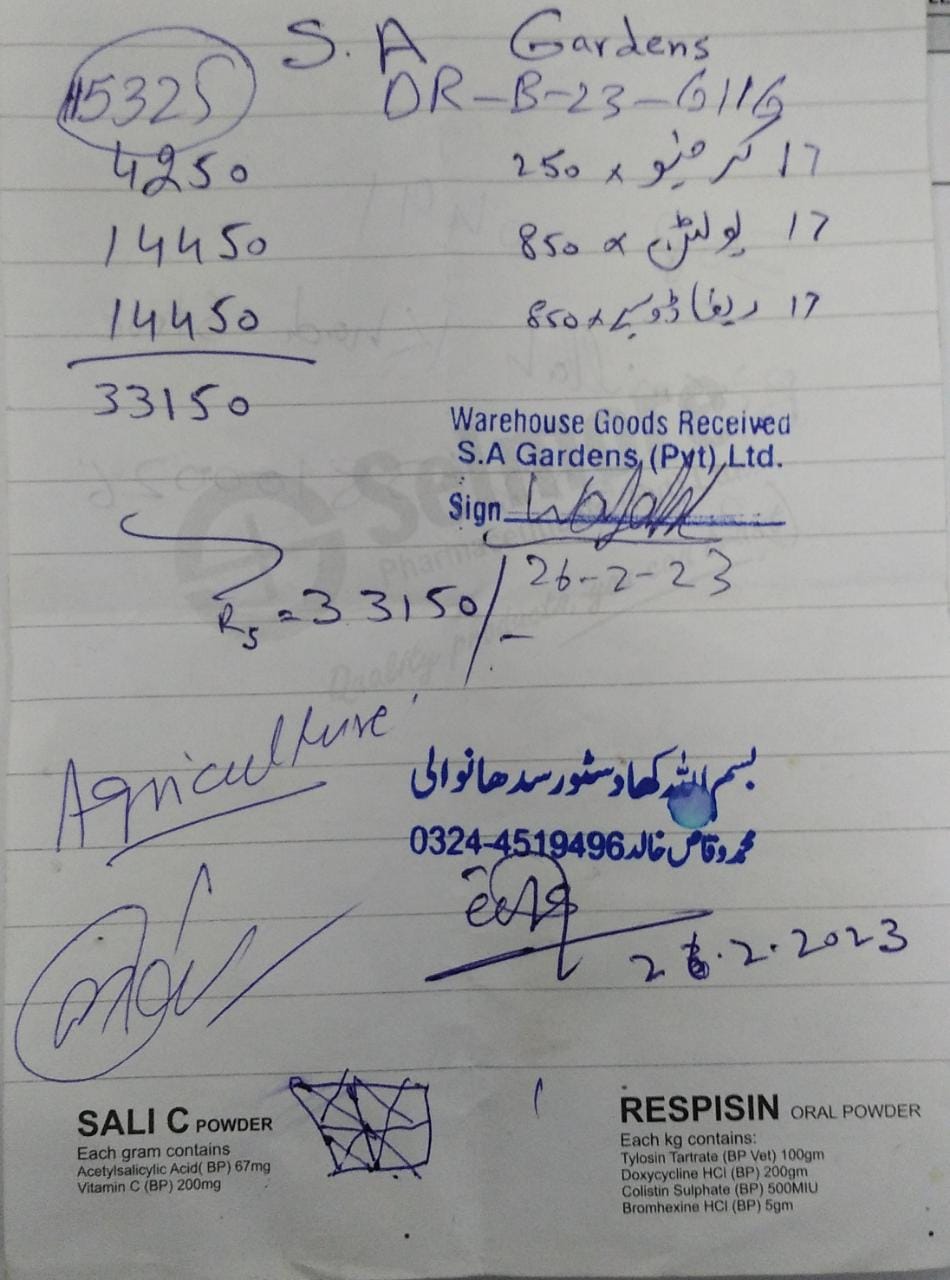 S. A Gardens
15325
DR-B-23-6116
4250 250 x 17
14450 850 x پولٹن 17
14450 850 x 17
33150
Warehouse Goods Received
S.A Gardens (Pvt) Ltd.
Sign
26-2-23
Rs = 33150/-
Agriculture
بسم اللہ کھاد سٹور سدھانوالی
محمد وقاص خالد 0324-4519496
26.2.2023
SALI C POWDER
Each gram contains
Acetylsalicylic Acid( BP) 67mg
Vitamin C (BP) 200mg
RESPISIN ORAL POWDER
Each kg contains:
Tylosin Tartrate (BP Vet) 100gm
Doxycycline HCl (BP) 200gm
Colistin Sulphate (BP) 500MIU
Bromhexine HCl (BP) 5gm